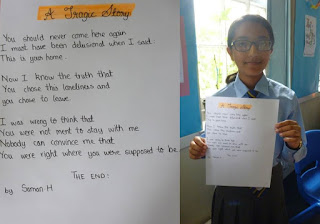 A Tragic Story
You should never come here again
I must have been delusional when I said:
This is your home.
Now I know the truth that
You chose this loneliness and
you chose to leave.
I was wrong to think that
You were not ment to stay with me
Nobody can convince me that
You were right where you were supposed to be
THE END:
by Saman H